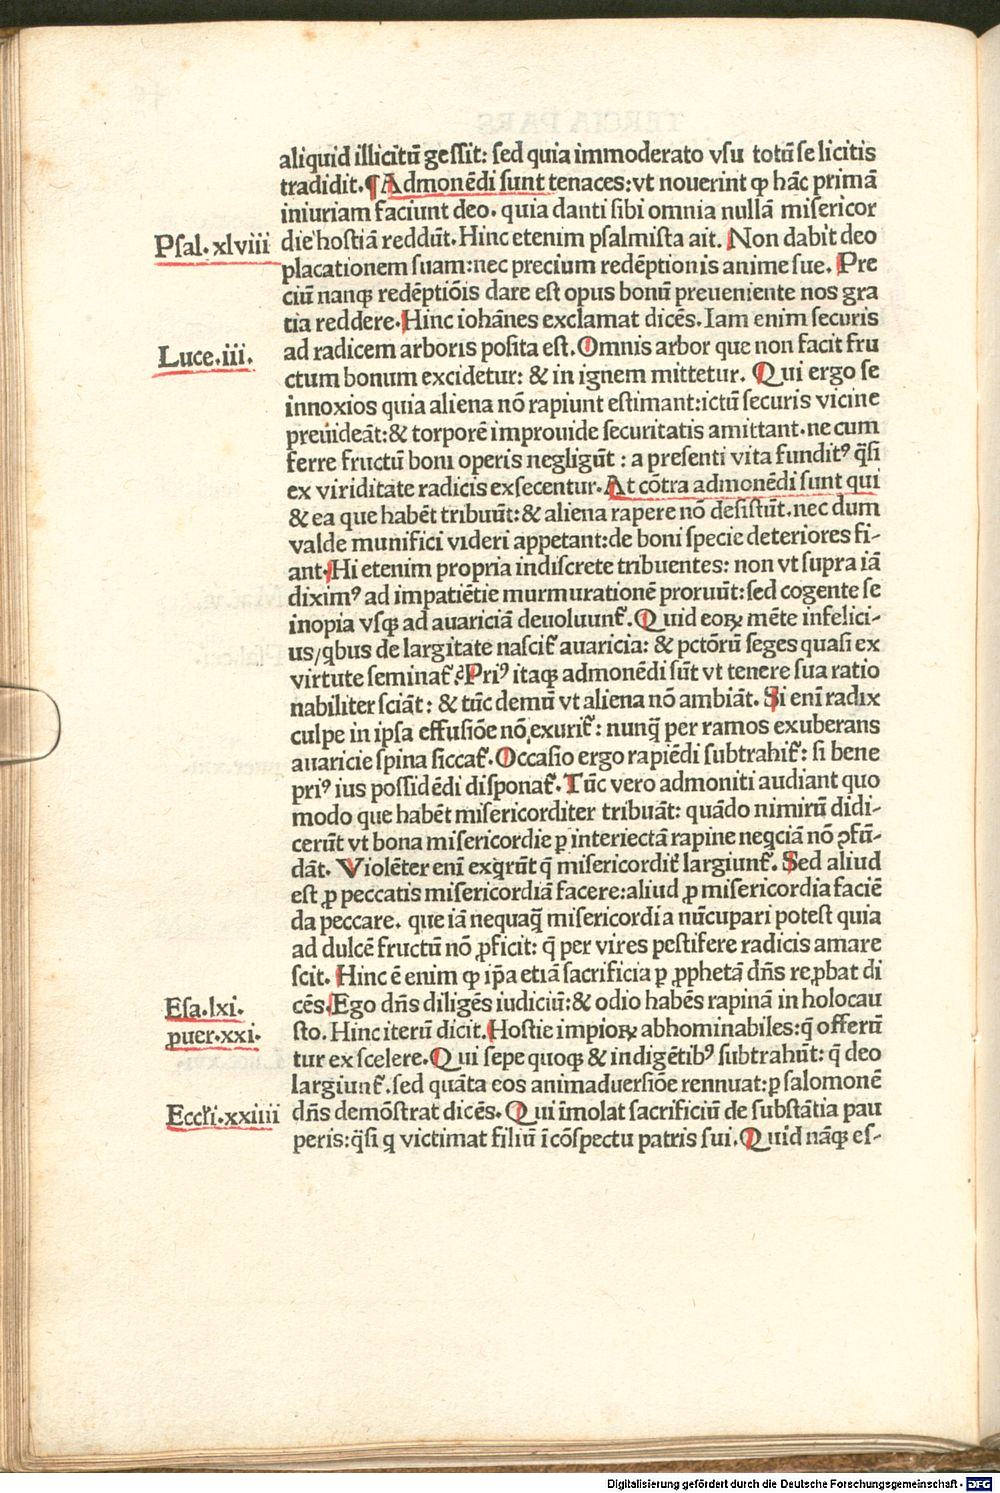 aliquid illicitū geſſit: ſed quia immoderato vſu totū ſe licitis
tradidit. ¶ Admonēdi ſunt tenaces: vt nouerint ꝙ hāc primā
iniuriam faciunt deo. quia danti ſibi omnia nullā miſericor
Pſal. xlviii
die hoſtiā reddūt. Hinc etenim pſalmiſta ait. Non dabit deo
placationem ſuam: nec precium redēptionis anime ſue. Pre
ciū nanqꝫ redēptiōis dare eſt opus bonū preueniente nos gra
tia reddere. Hinc iohānes exclamat dicēs. Iam enim ſecuris
Luce. iii.
ad radicem arboris poſita eſt. Omnis arbor que non facit fru
ctum bonum excidetur: & in ignem mittetur. Qui ergo ſe
innoxios quia aliena nō rapiunt eſtimant: ictū ſecuris vicine
preuideāt: & torporē improuide ſecuritatis amittant. ne cum
ferre fructū boni operis negligūt : a preſenti vita funditꝰ q̄ſi
ex viriditate radicis exſecentur. At cōtra admonēdi ſunt qui
& ea que habēt tribuūt: & aliena rapere nō deſiſtūt. nec dum
valde munifici videri appetant: de boni ſpecie deteriores fi-
ant. Hi etenim propria indiſcrete tribuentes: non vt ſupra iā
diximꝰ ad impatiētie murmurationē proruūt: ſed cogente ſe
inopia vſqꝫ ad auariciā deuoluunt̄. Quid eoꝝ mēte infelici-
us/ qbus de largitate naſcit̄ auaricia: & pctōrū ſeges quaſi ex
virtute ſeminat̄? Priꝰ itaqꝫ admonēdi ſūt vt tenere ſua ratio
nabiliter ſciāt: & tūc demū vt aliena nō ambiāt. Si enī radix
culpe in ipſa effuſiōe nō exurit̄: nunq̄ per ramos exuberans
auaricie ſpina ſiccat̄. Occaſio ergo rapiēdi ſubtrahit̄: ſi bene
priꝰ ius poſſidēdi diſponat̄. Tūc vero admoniti audiant quo
modo que habēt miſericorditer tribuāt: quādo nimirū didi-
cerūt vt bona miſericordie ꝑ interiectā rapine neqciā nō ꝯfū-
dāt. Violēter enī exqrūt q̄ miſericordit̄ largiunt̄. Sed aliud
eſt ꝓ peccatis miſericordiā facere: aliud ꝓ miſericordia faciē
da peccare. que iā nequaq̄ miſericordia nūcupari poteſt quia
ad dulcē fructū nō ꝓficit: q̄ per vires peſtifere radicis amare
ſcit. Hinc ē enim ꝙ ip̄a etiā ſacrificia ꝑ ꝓphetā dn̄s reꝓbat di
Eſa. lxi.
cēs. Ego dn̄s diligēs iudiciū: & odio habēs rapinā in holocau
ꝓuer. xxi.
ſto. Hinc iterū dicit. Hoſtie impioꝝ abhominabiles: q̄ offerū
tur ex ſcelere. Qui ſepe quoqꝫ & indigētibꝰ ſubtrahūt: q̄ deo
largiunt̄. ſed quāta eos animaduerſiōe rennuat: ꝑ ſalomonē
Eccłi. xxiiii
dn̄s demōſtrat dicēs. Qui īmolat ſacrificiū de ſubſtātia pau
peris: q̄ſi q victimat filiū ī cōſpectu patris ſui. Quid nāqꝫ eſ-
Digitalisierung gefördert durch die Deutsche Forschungsgemeinschaft - DFG